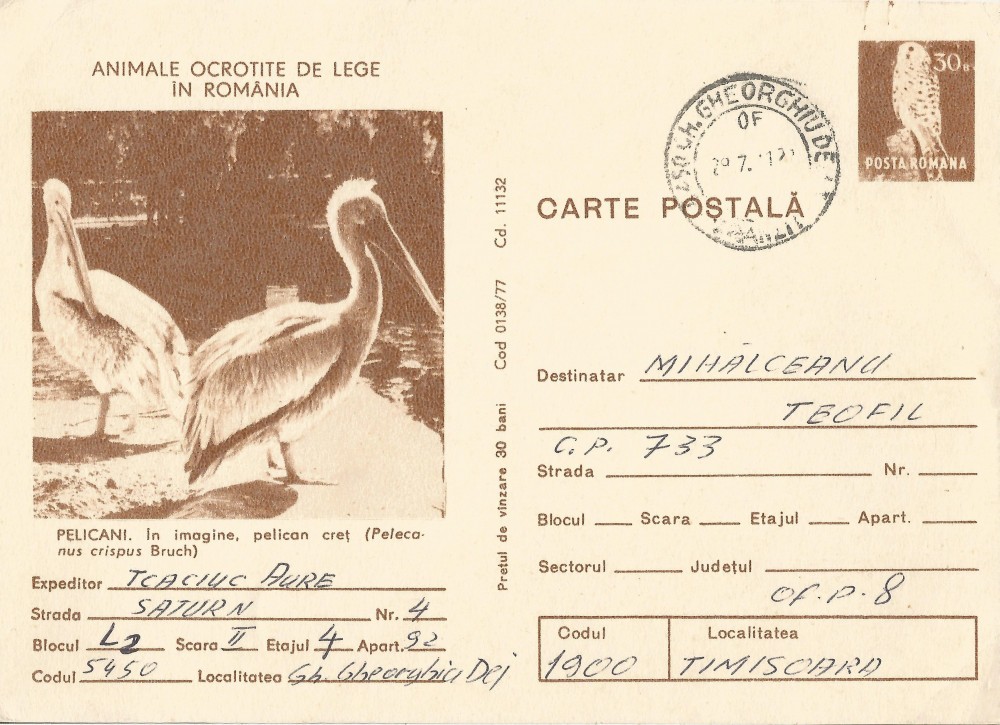 ANIMALE OCROTITE DE LEGE
ÎN ROMÂNIA
PELICANI. În imagine, pelican creț (Peleca-
nus crispus Bruch)
Expeditor TCACIUC AURE
Strada SATURN Nr. 4
Blocul L2 Scara II Etajul 4 Apart. 92
Codul 5450 Localitatea Gh. Gheorghiu Dej
Prețul de vînzare 30 bani Cod 0138/77 Cd. 11132
30 B
POSTA ROMANA
GH. GHEORGHIU DE
OF
CARTE POȘTALĂ
Destinatar MIHALCEANU
TEOFIL
C.P. 733
Strada Nr.
Blocul Scara Etajul Apart.
Sectorul Județul
OF. P. 8
Codul Localitatea
1900 TIMISOARA